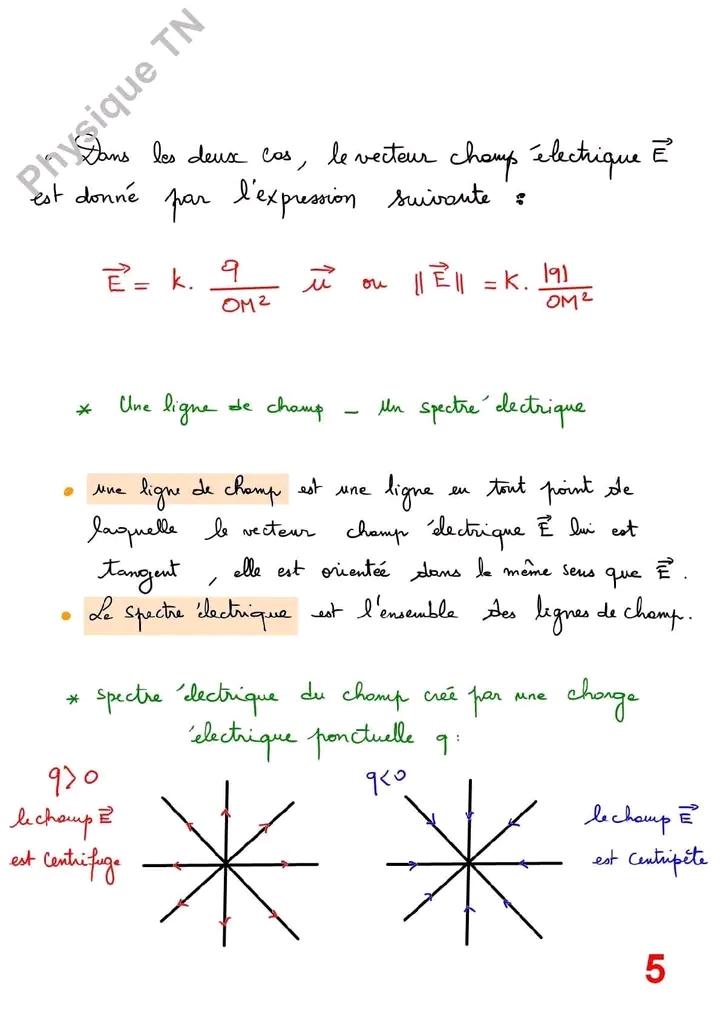 Physique TN
Dans les deux cas, le vecteur champ électrique E⃗
est donné par l'expression suivante :
E⃗ = K. q/OM² u⃗ ou ||E⃗|| = K. |q|/OM²
* Une ligne de champ - Un spectre électrique
• une ligne de champ est une ligne en tout point de
laquelle le vecteur champ électrique E⃗ lui est
tangent, elle est orienteé dans le même sens que E⃗.
• Le spectre électrique est l'ensemble des lignes de champ.
* spectre électrique du champ creé par une charge
électrique ponctuelle q :
q > 0
le champ E⃗
est centrifuge
q < 0
le champ E⃗
est centripète
5